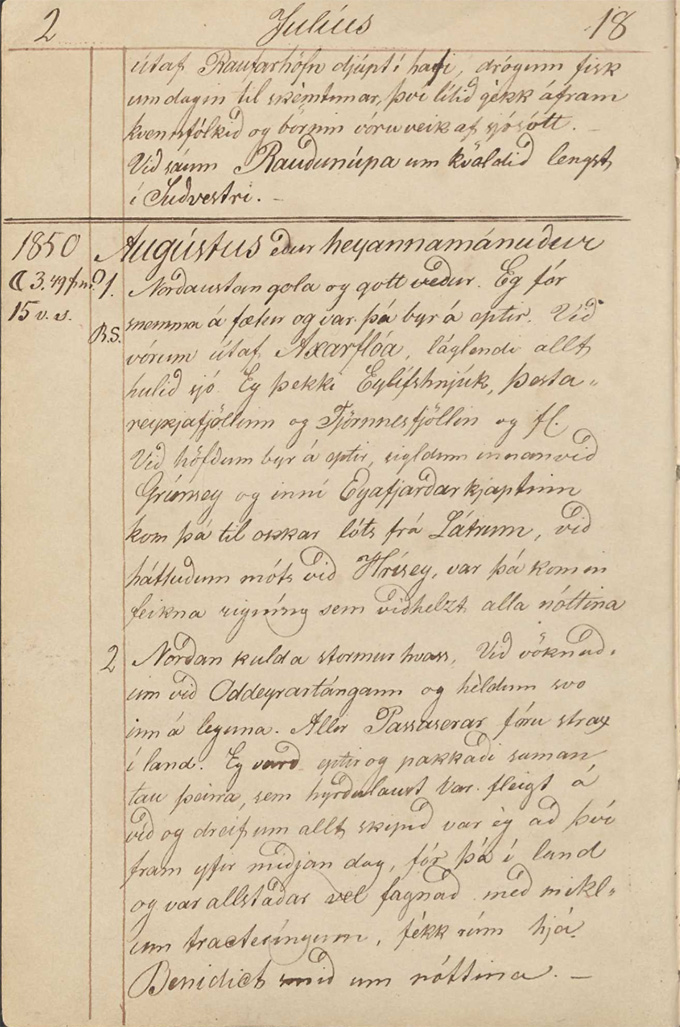 2 Julíus 18
útaf Raufarhöfn djúpt í hafi, drógum fisk
um dagin til skémtunar, því lítið gékk áfram
kvennfólkið og börnin vóru veik af sjósótt. –
Við sáum Rauðunúpa um kvöldið lengst
í Suðvestri. –
1850 Augústus eður heyannamánuður
☾ 3. 49 f.m. 1. Norðaustan gola og gott veður. Eg fór
15 v. s. snemma á fætur og var þá byr á eptir. Við
R.S. vórum útaf Axarflóa, láglendi allt
hulið sjó. Eg þekki Eylífshnjúk, Þesta-
reykjafjöllinn og Tjörnnesfjöllin og fl.
Við höfðum byr á eptir, sigldum innanvið
Grímsey og inní Eyafjarðarkjaptinn
kom þá til okkar lóts frá Látrum, við
háttuðum móts við Hrísey, var þá komin
feikna rigníng sem viðhelzt alla nóttina
2 Norðan kulda stormur hvass. Við vöknuð-
um við Oddeyrartángann og héldum svo
inn á leguna. Aller Passaserar fóru strax
í land. Eg varð eptir og pakkaði saman
tau þeirra, sem hyrðulaust var fleigt á
við og dreif um allt skipið var ég að því
fram yfir miðjan dag, fór þá í land
og var allstaðar vel fagnað með mikl-
um tracteríngum, fékk rúm hjá
Benidict smið um nóttina. –